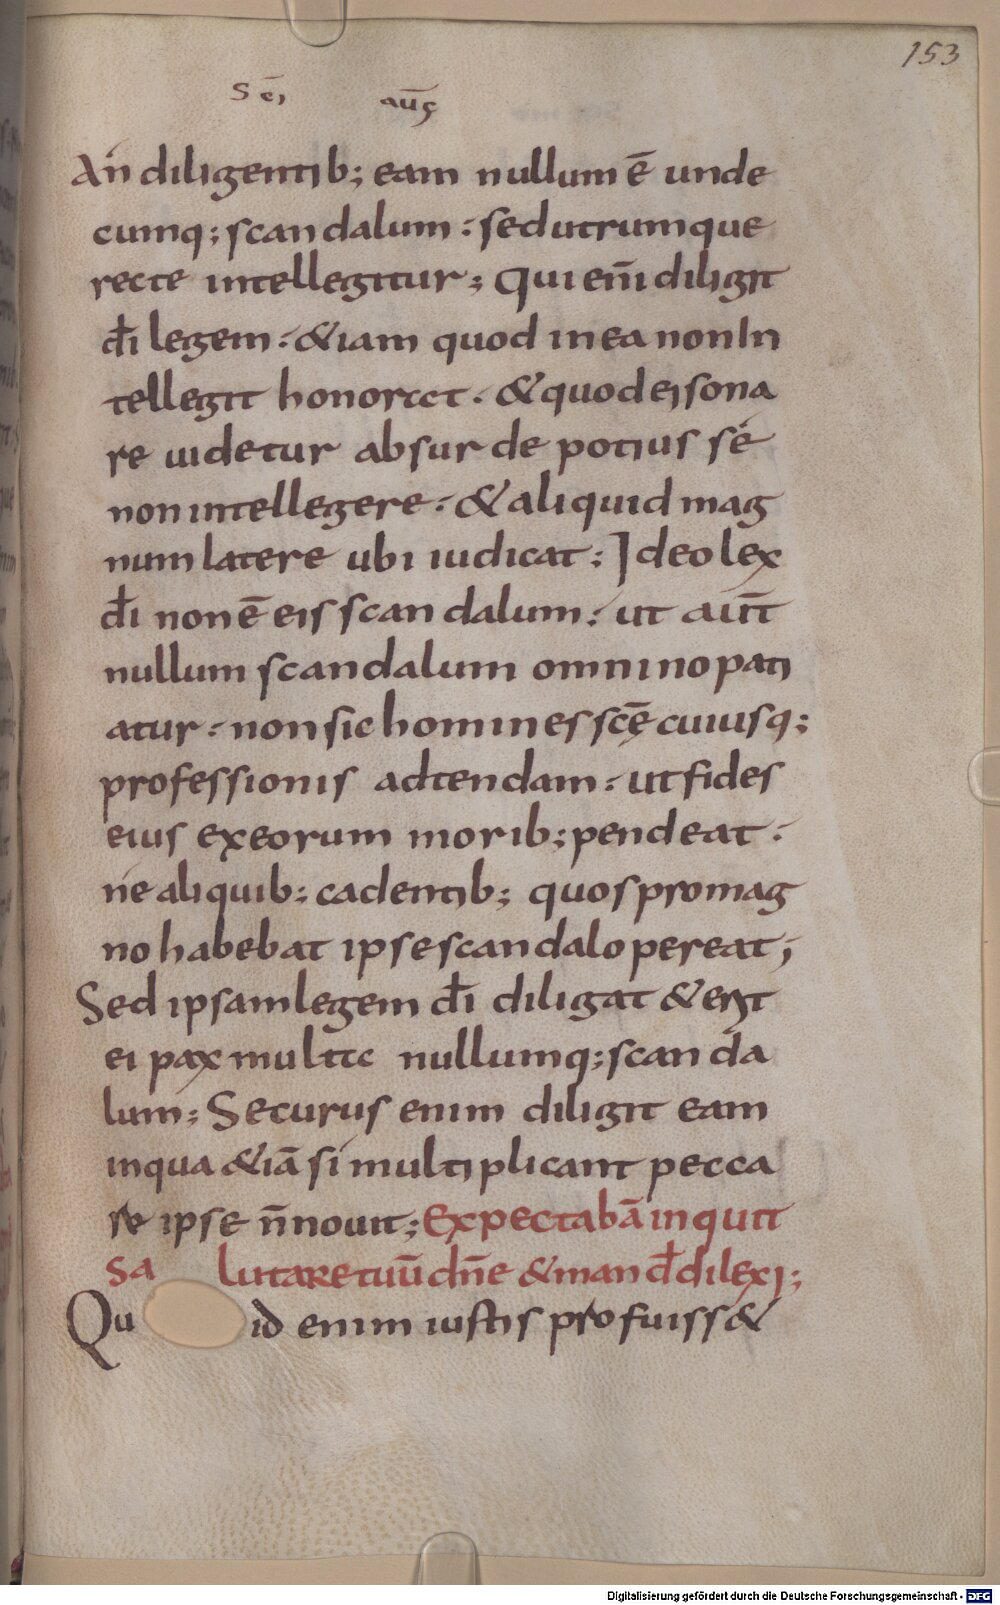 153
SC̄I AUḠ
An diligentib; eam nullum ē unde
cumq; scandalum : sed utrumque
recte intellegitur ; Qui eni̅ diligit
d̄i legem : &iam quod in ea non In
tellegit honorat . & quod ei sona
re uidetur absurde potius sé
non intellegere : & aliquid mag
num latere ubi iudicat : Ideo lex
d̄i non ē eis scandalum : ut aut̄
nullum scandalum omnino pati
atur : non sic homines sc̄ę cuiusq;
professionis adtendam : ut fides
eius ex eorum morib; pendeat :
ne aliquib: cadentib; quos pro mag
no habebat ipse scandalo pereat ;
Sed ipsam legem d̄i diligat & erit
ei pax multa nullumq; scanda
lum ; Securus enim diligit eam
inqua &iā si multi plicant pecca
re ipse n̄ nouit ; Expectabā inquit
salutare tuū dn̄e & mand̄ dilexi ;
Quid enim iustis profuiss&
Digitalisierung gefördert durch die Deutsche Forschungsgemeinschaft - DFG